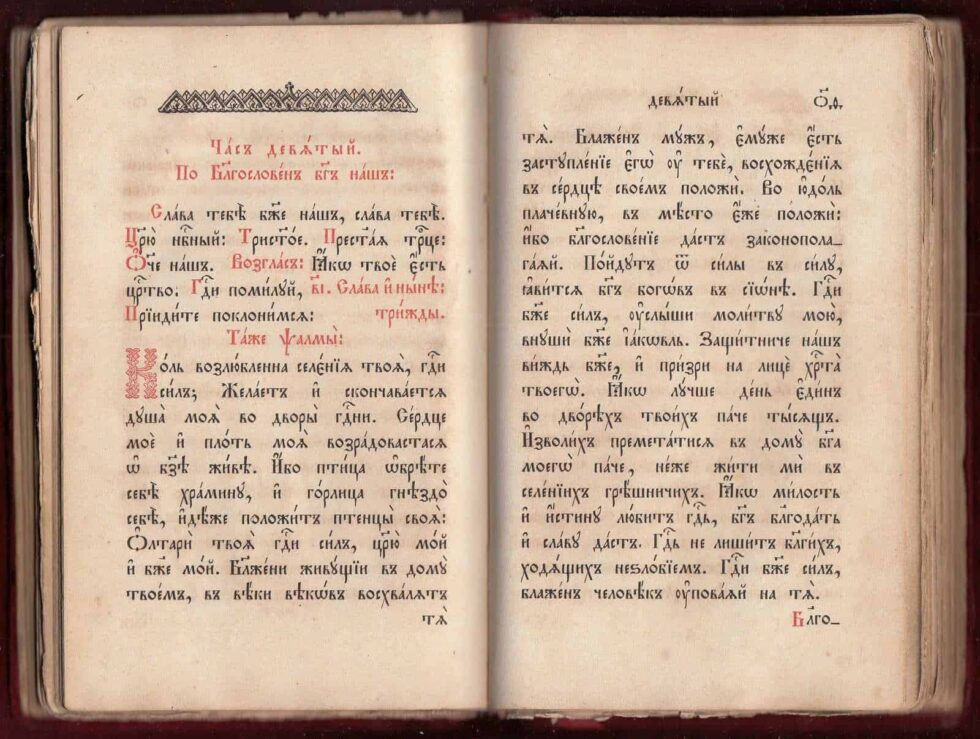 Ча́съ девѧ́тый.
По Бл҃гослове́нъ бг҃ъ на́шъ:
Сла́ва тебѣ̀ бж҃е на́шъ, сла́ва тебѣ̀.
Цр҃ю̀ нбⷭ҇ный: Трист҃о́е. Прест҃а́ѧ трⷪ҇це:
Ѻ҆́ч҃е на́шъ. Возгла́съ: Ꙗ҆́кѡ твоѐ є҆́сть
црⷭ҇тво. Гдⷭ҇и поми́лꙋй, в҃і. Сла́ва и҆ ны́нѣ:
Прїиди́те поклони́мсѧ: три́жды.
Та́же ѱалмы̀:
Ко́ль возлю́бленна селє́нїѧ твоѧ̑, гдⷭ҇и
си́лъ; Жела́етъ и҆ сконча́ваетсѧ
дꙋша̀ моѧ̀ во дворы̀ гдⷭ҇ни. Се́рдце
моѐ и҆ пло́ть моѧ̀ возра́довастасѧ
ѡ҆ бз҃ѣ жи́вѣ. И҆́бо пти́ца ѡ҆брѣ́те
себѣ̀ хра́минꙋ, и҆ го́рлица гнѣздо̀
себѣ̀, и҆дѣ́же положи́тъ птенцы̀ своѧ̑:
Ѻ҆лтари̑ твоѧ̑ гдⷭ҇и си́лъ, цр҃ю̀ мо́й
и҆ бж҃е мо́й. Бл҃же́ни живꙋ́щїи въ домꙋ̀
твое́мъ, въ вѣ́ки вѣкѡ́въ восхва́лѧтъ
тѧ̀
девѧ́тый
ѻ҃ѳ.
тѧ̀. Блаже́нъ мꙋ́жъ, є҆мꙋ́же є҆́сть
застꙋпле́нїе є҆гѡ̀ ᲂу҆ тебѐ, восхождє́нїѧ
въ се́рдцѣ свое́мъ положѝ. Во ю҆до́ль
плаче́внꙋю, въ мѣ́сто є҆́же положѝ:
и҆́бо бл҃гослове́нїе да́стъ законопола_
га́ѧй. По́йдꙋтъ ѿ си́лы въ си́лꙋ,
ꙗ҆ви́тсѧ бг҃ъ богѡ́въ въ сїѡ́нѣ. Гдⷭ҇и
бж҃е си́лъ, ᲂу҆слы́ши моли́твꙋ мою̀,
внꙋшѝ бж҃е і҆а́кѡвль. Защи́тниче на́шъ
ви́ждь бж҃е, и҆ при́зри на лицѐ хрⷭ҇та̀
твоегѡ̀. Ꙗ҆́кѡ лꙋ́чше де́нь є҆ди́нъ
во дво́рѣхъ твои́хъ па́че ты́сѧщъ.
И҆зво́лихъ премета́тисѧ въ домꙋ̀ бг҃а
моегѡ̀ па́че, не́же жи́ти мѝ въ
селе́нїихъ грѣ́шничихъ. Ꙗ҆́кѡ ми́лость
и҆ и҆́стинꙋ лю́битъ гдⷭ҇ь, бг҃ъ бл҃года́ть
и҆ сла́вꙋ да́стъ. Гдⷭ҇ь не лиши́тъ бл҃ги́хъ,
ходѧ́щихъ неѕло́бїемъ. Гдⷭ҇и бж҃е си́лъ,
блаже́нъ человѣ́къ ᲂу҆пова́ѧй на тѧ̀.
Бл҃го_